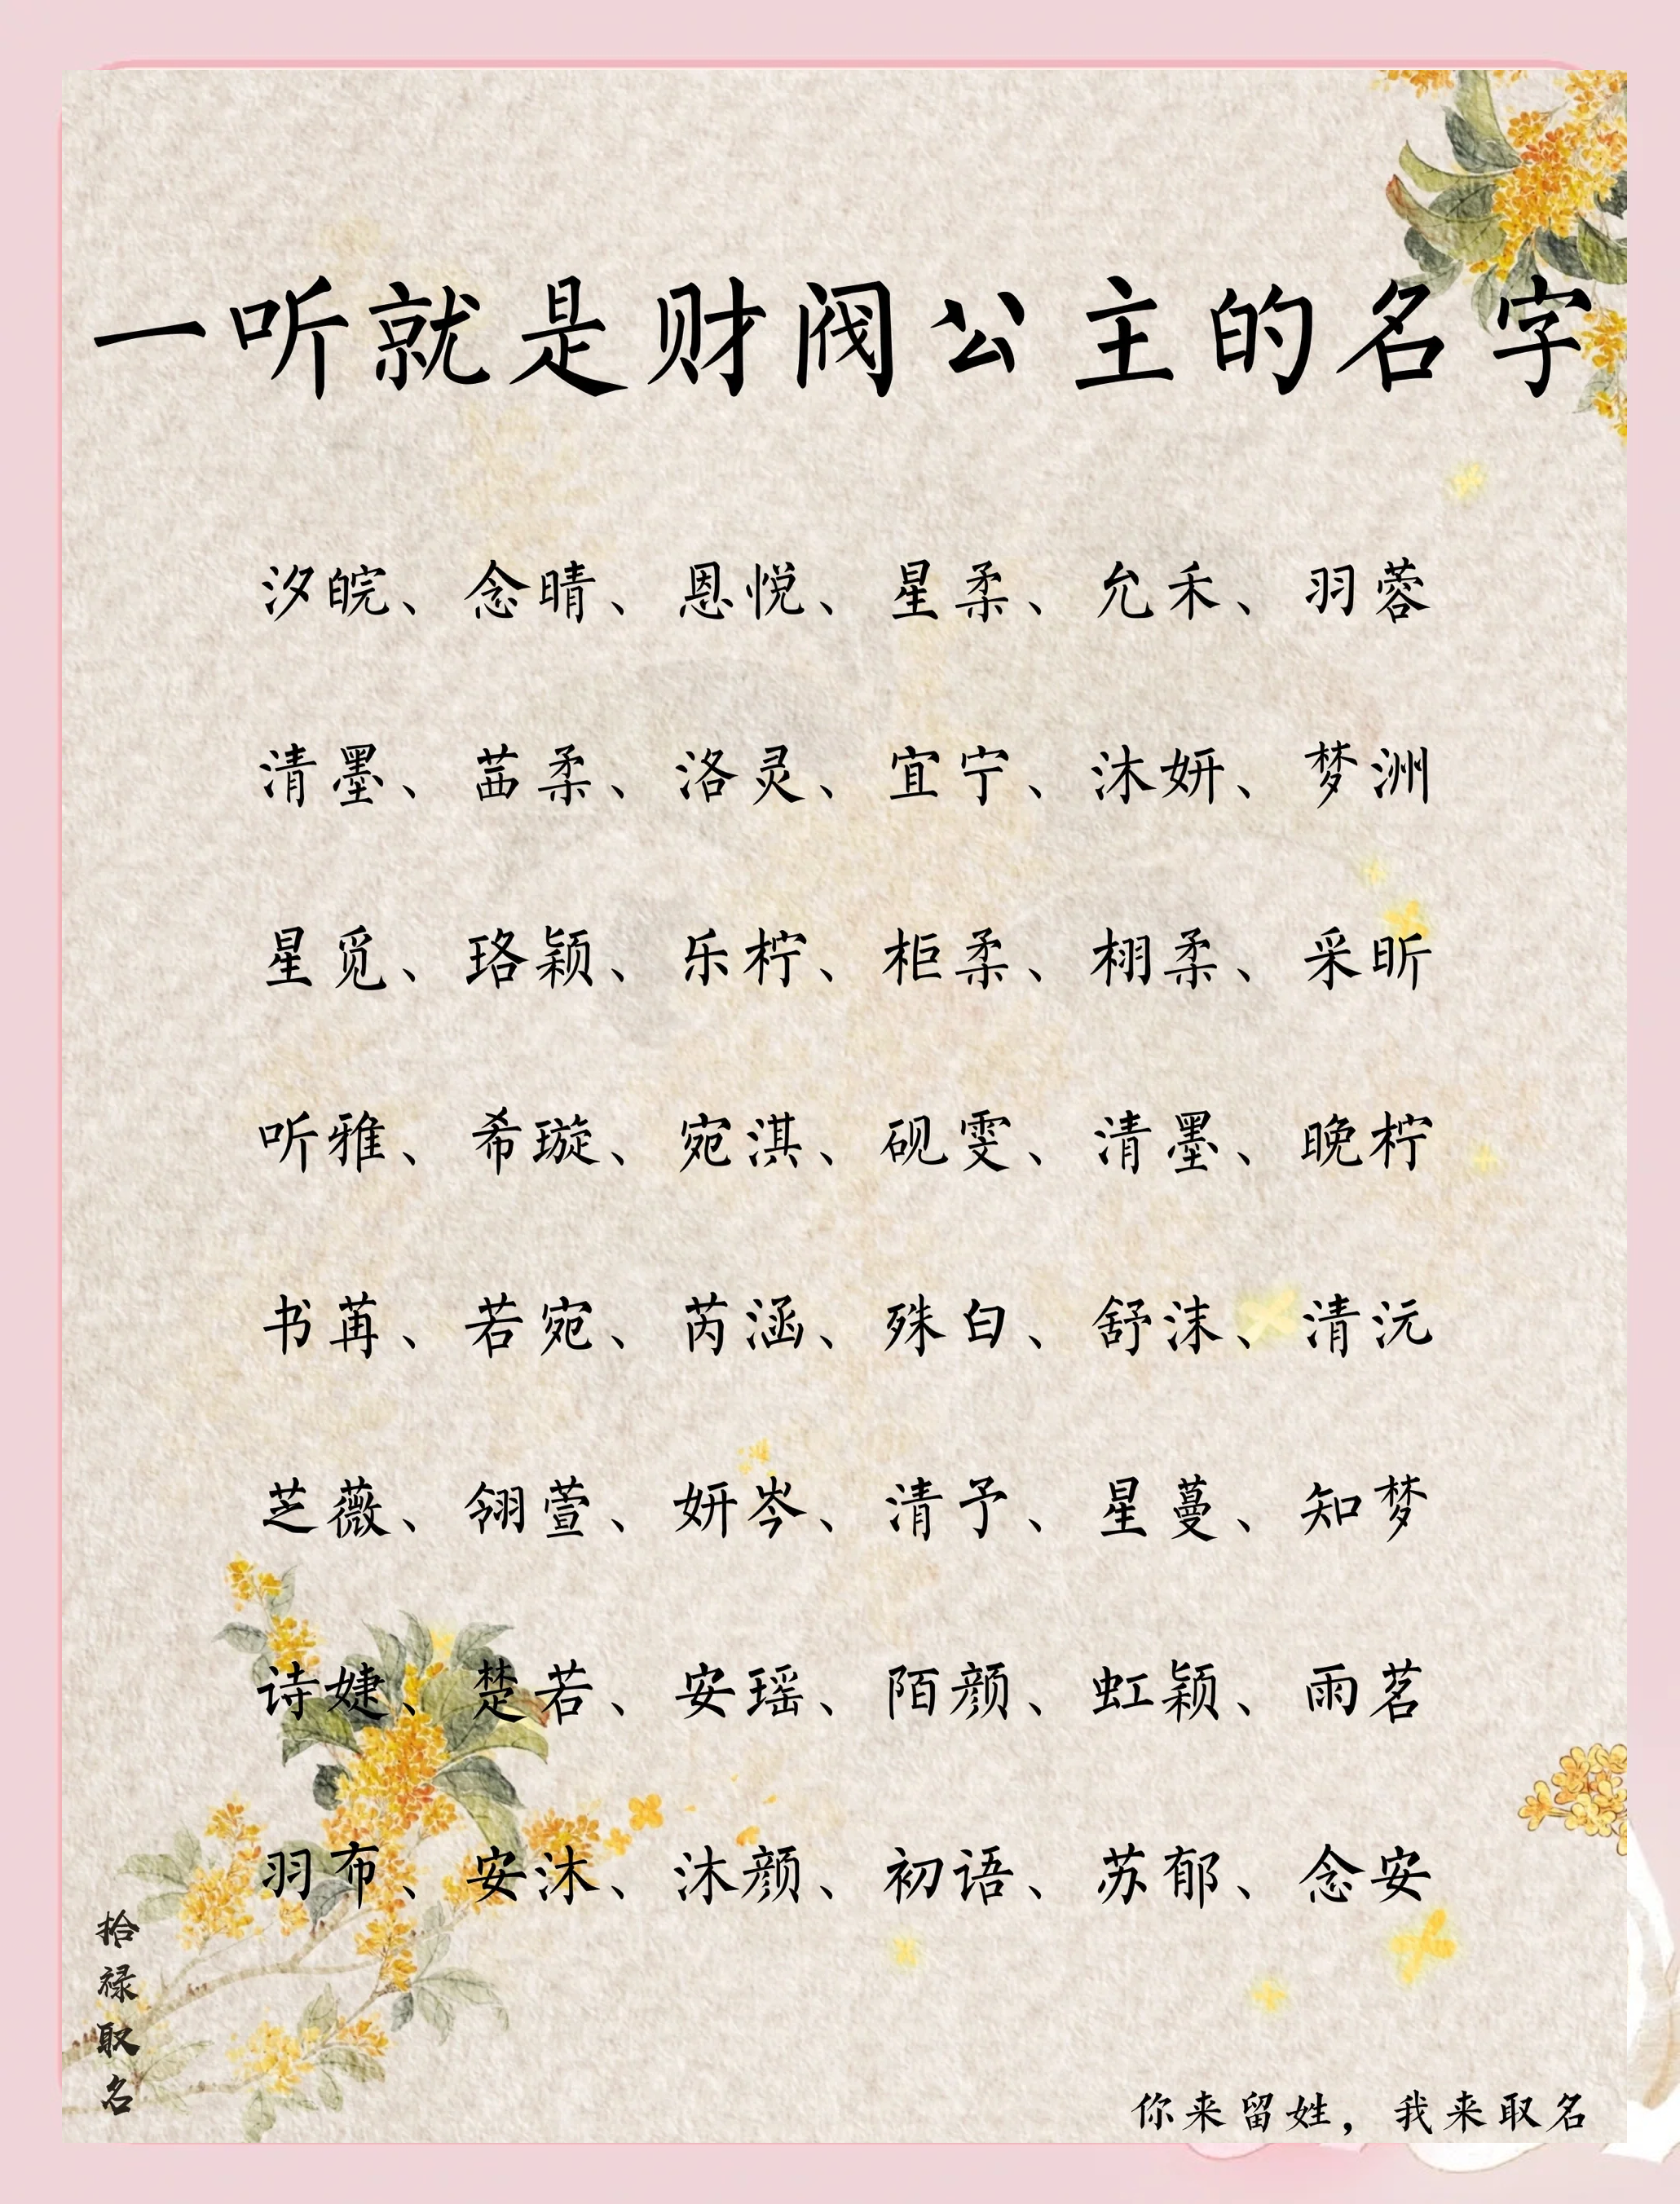 一听就是财阀公主的名字
汐皖、念晴、恩悦、星柔、允禾、羽蓉
清墨、莤柔、洛灵、宜宁、沐妍、梦洲
星觅、珞颖、乐柠、柜柔、栩柔、采昕
听雅、希璇、宛淇、砚雯、清墨、晚柠
书苒、若宛、芮涵、殊白、舒沫、清沅
芝薇、翎萱、妍岑、清予、星蔓、知梦
诗婕、楚若、安瑶、陌颜、虹颖、雨茗
羽布、安沐、沐颜、初语、苏郁、念安
拾禄取名
你来留姓，我来取名